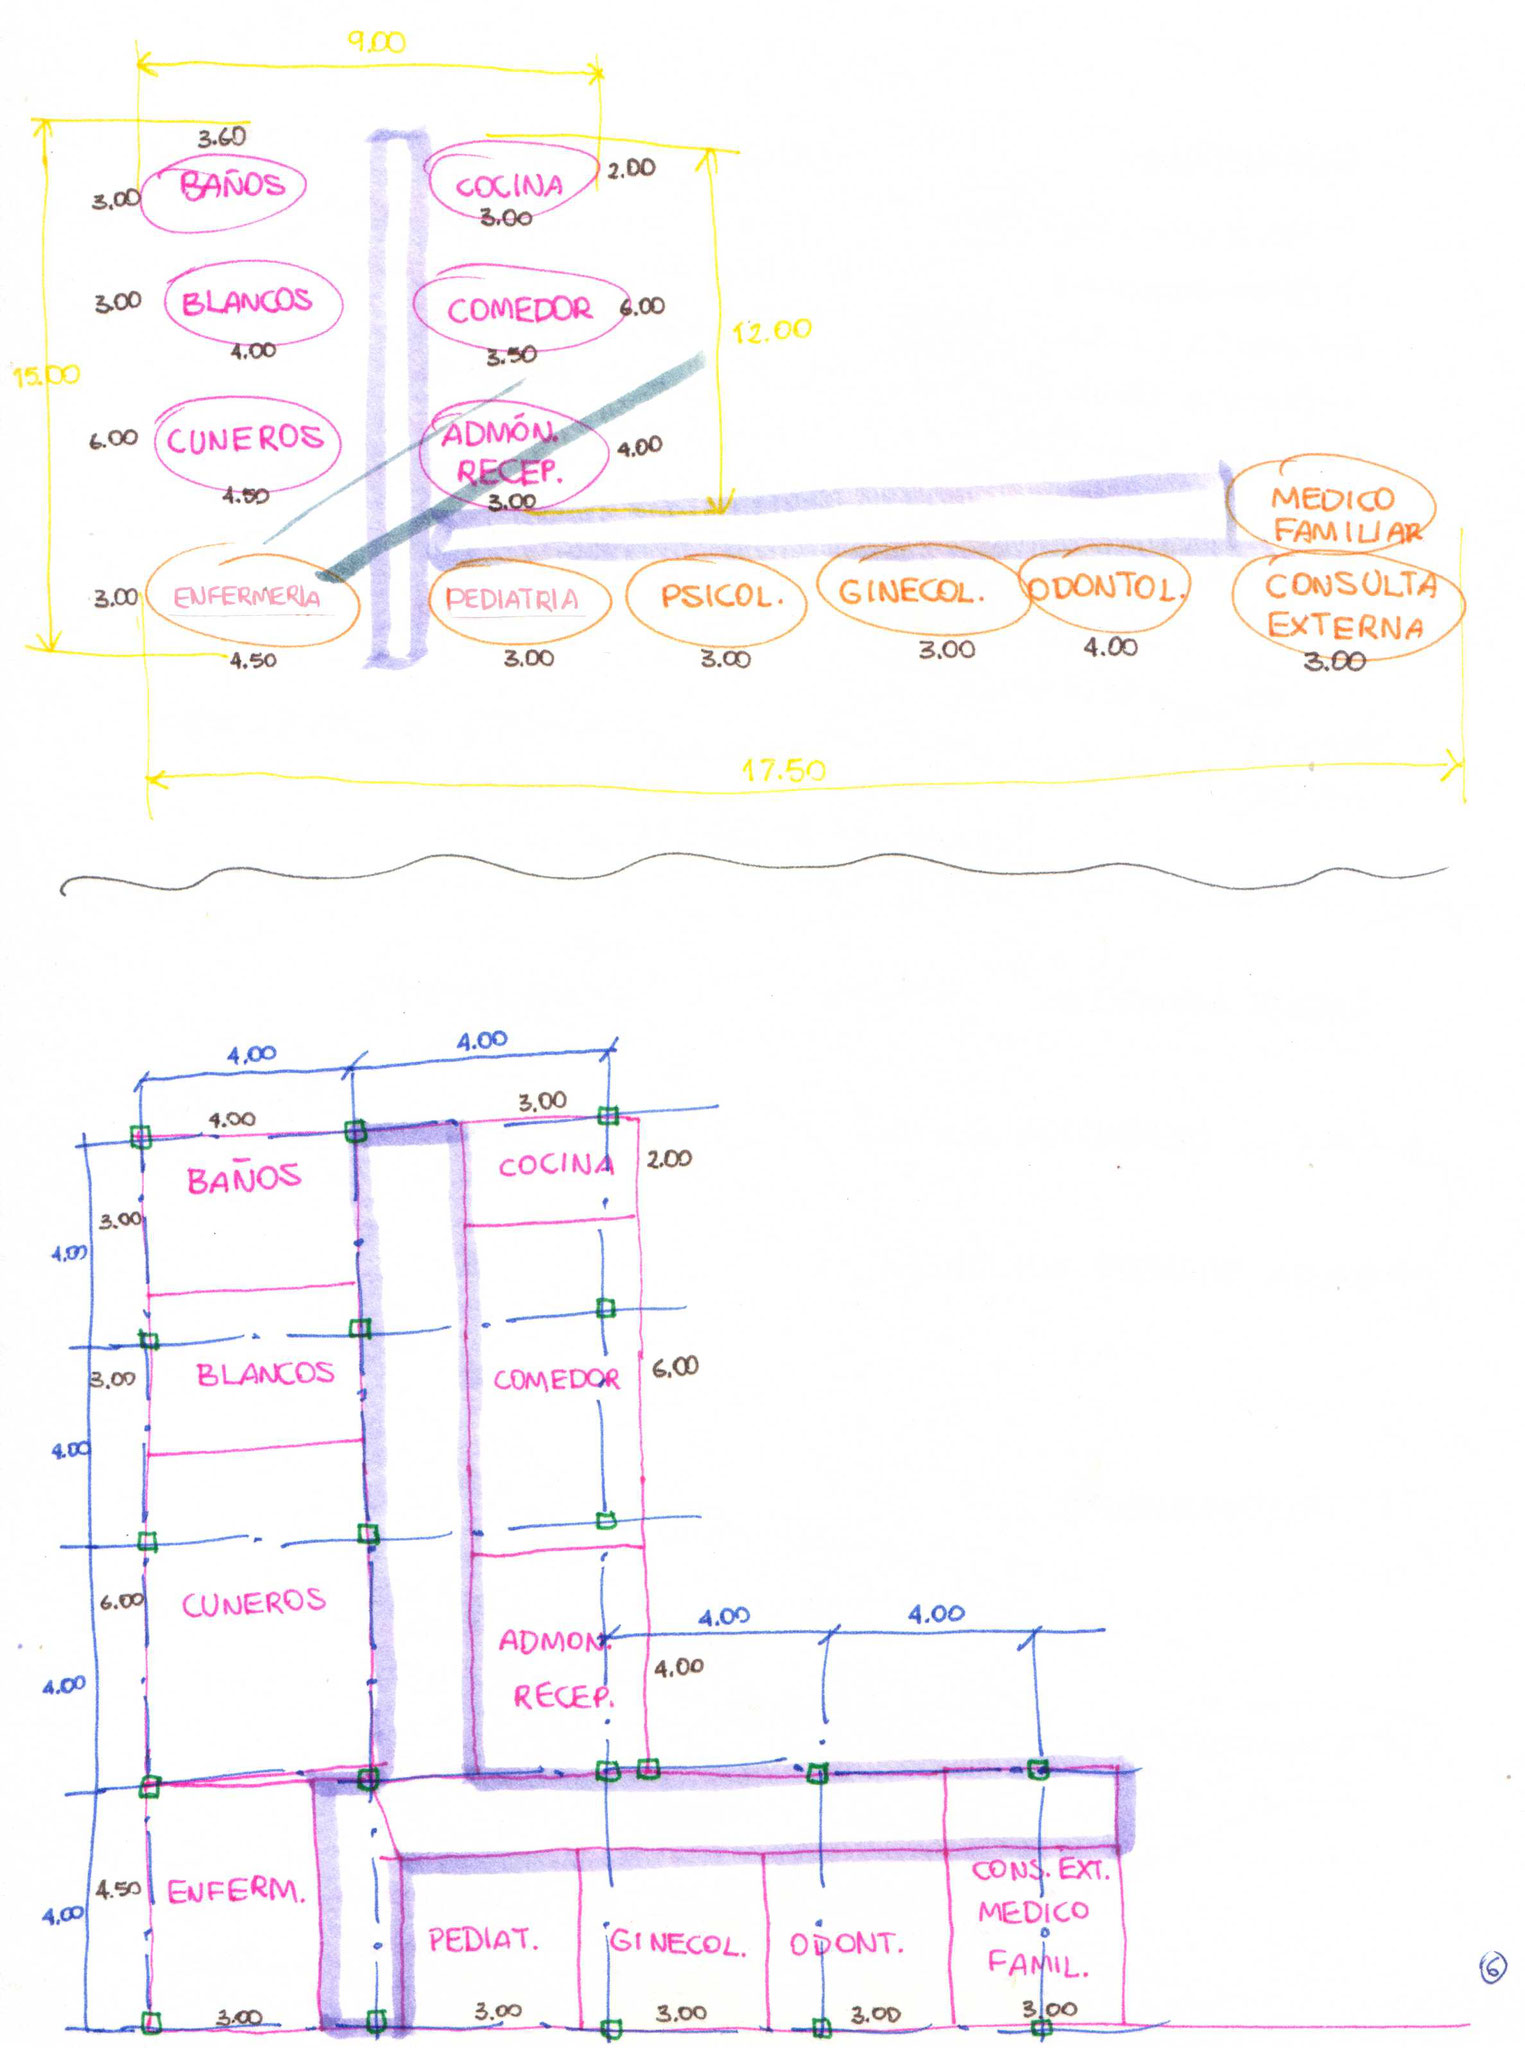 9.00
3.60
BAÑOS
3.00
COCINA
2.00
3.00
3.00
BLANCOS
4.00
COMEDOR
6.00
3.50
12.00
15.00
6.00
CUNEROS
4.50
ADMÓN.
RECEP.
4.00
3.00
MEDICO
FAMILIAR
3.00
ENFERMERIA
4.50
PEDIATRIA
3.00
PSICOL.
3.00
GINECOL.
3.00
ODONTOL.
4.00
CONSULTA
EXTERNA
3.00
17.50
4.00
4.00
4.00
3.00
BAÑOS
COCINA
2.00
3.00
4.00
3.00
BLANCOS
COMEDOR
6.00
4.00
6.00
CUNEROS
4.00
4.00
ADMON.
RECEP.
4.00
4.00
4.50
ENFERM.
4.00
PEDIAT.
GINECOL.
ODONT.
CONS. EXT.
MEDICO
FAMIL.
3.00
3.00
3.00
3.00
3.00
6